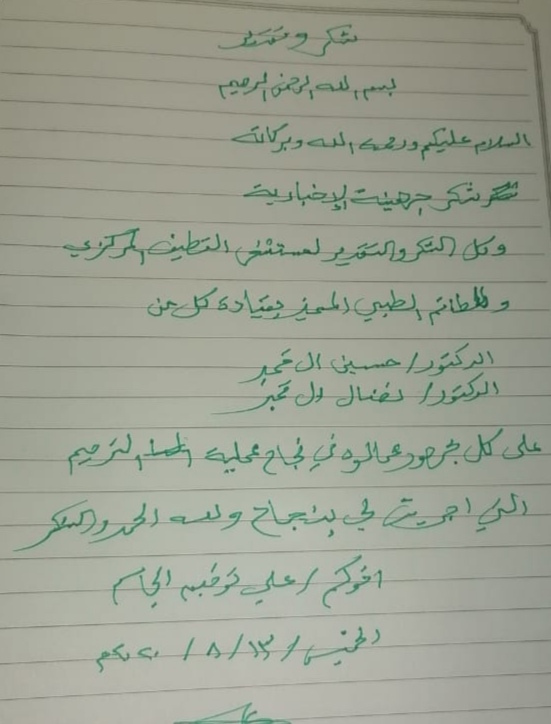 شكر وتقدير
بسم الله الرحمن الرحيم
السلام عليكم ورحمة الله وبركاته
شكر جهينة الإخبارية
وكل الشكر والتقدير لمستشفى القطيف المركزي
وللطاقم الطبي المميز بقيادة كل من
الدكتور / حسين ال محمد
الدكتور / نضال ال محمد
على كل مجهود عملوه في نجاح عملية الترميم
التي اجريت لي بنجاح ولله الحمد والشكر
اخوكم / علي توفيق الجاسم
الخميس / ١٣ / ٨ / ٢٠٢٠م